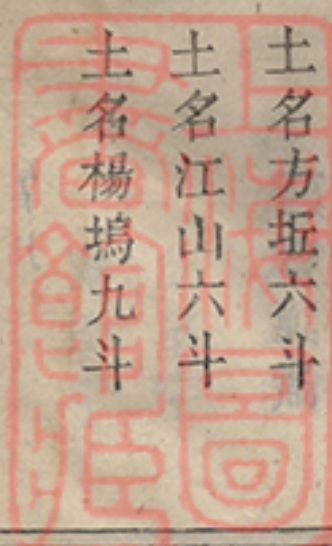 土名方坵六斗
土名江山六斗
土名楊塢九斗